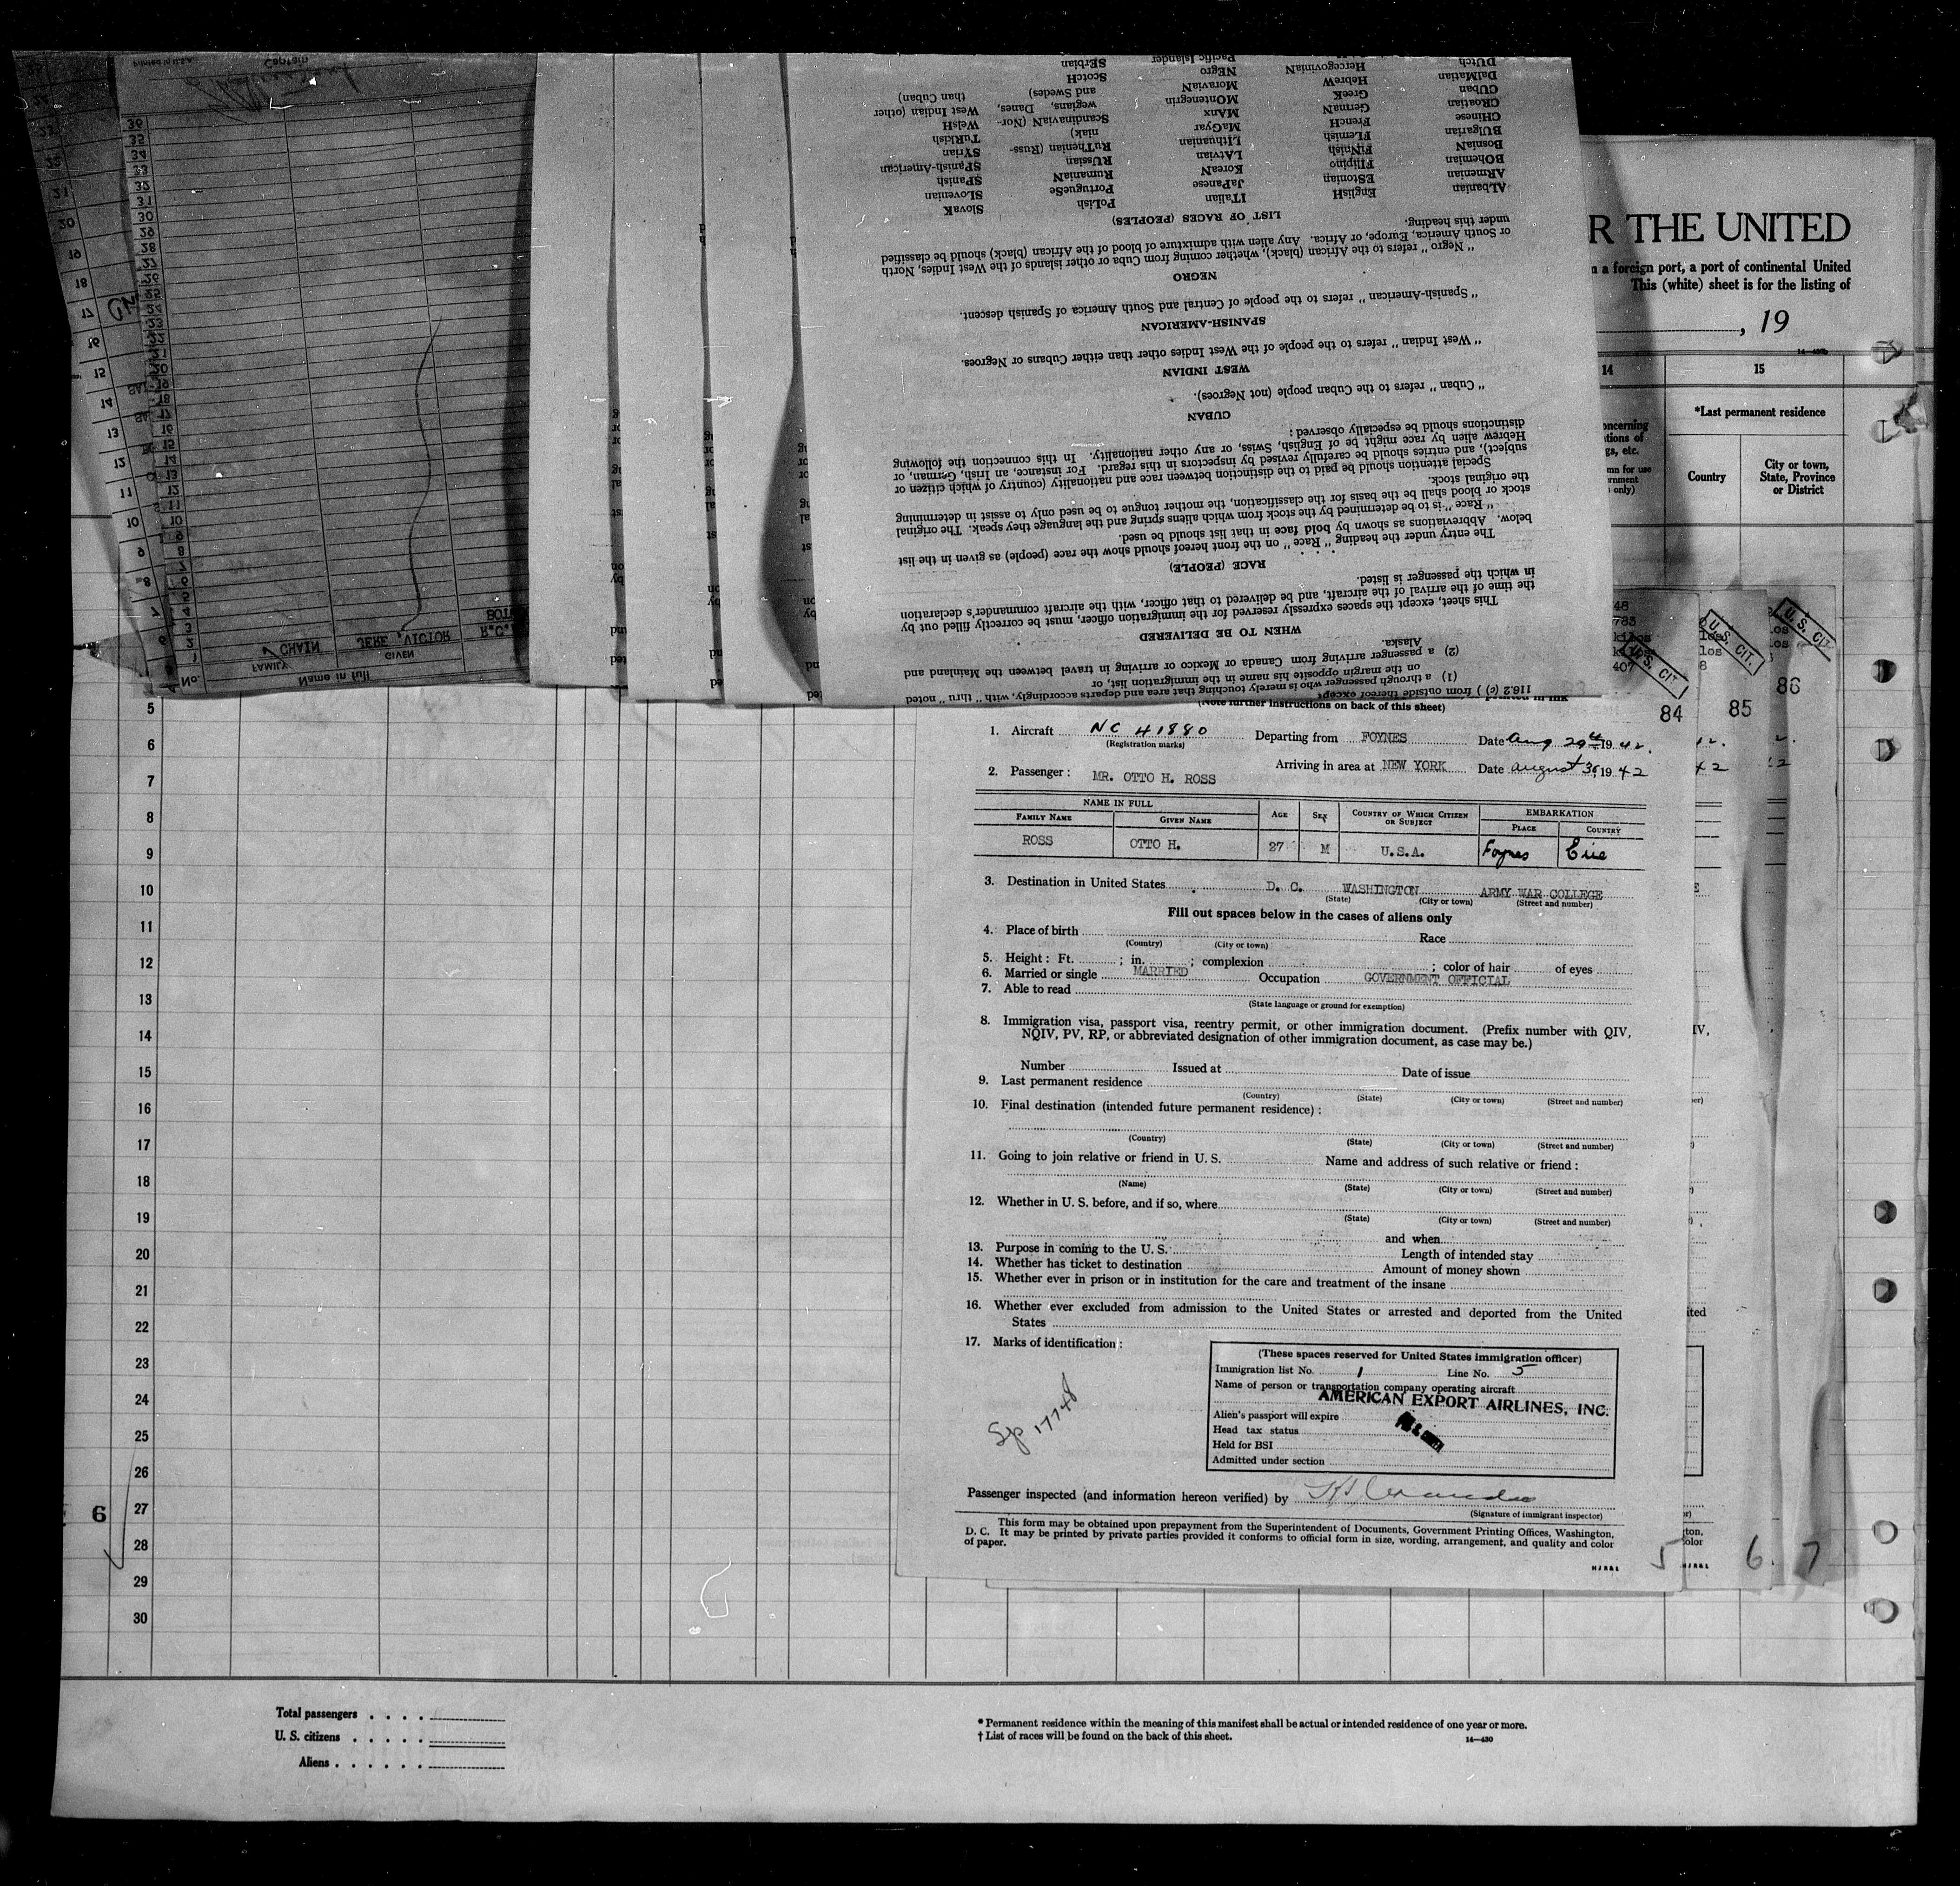 R THE UNITED
n a foreign port, a port of continental United
This (white) sheet is for the listing of
, 19
14 15
*Last permanent residence
Country
City or town,
State, Province
or District
Printed in U.S.A. Captain
No. Name in full
FAMILY GIVEN
CHAIN JERE, VICTOR
116.2 (c) ) from outside thereof except
(1) a through passenger who is merely touching that area and departs accordingly, with "thru" noted
on the margin opposite his name in the immigration list, or
(2) a passenger arriving from Canada or Mexico or arriving in travel between the Mainland and
Alaska.
WHEN TO BE DELIVERED
This sheet, except the spaces expressly reserved for the immigration officer, must be correctly filled out by
the time of the arrival of the aircraft, and be delivered to that officer, with the aircraft commander's declaration
in which the passenger is listed.
RACE (PEOPLE)
The entry under the heading "Race" on the front hereof should show the race (people) as given in the list
below. Abbreviations as shown by bold face in that list should be used.
"Race" is to be determined by the stock from which aliens spring and the language they speak. The original
stock or blood shall be the basis for the classification, the mother tongue to be used only to assist in determining
the original stock.
Special attention should be paid to the distinction between race and nationality (country of which citizen or
subject), and entries should be carefully revised by inspectors in this regard. For instance, an Irish, German, or
Hebrew alien by race might be of English, Swiss, or any other nationality. In this connection the following
distinctions should be especially observed:
CUBAN
"Cuban" refers to the Cuban people (not Negroes).
WEST INDIAN
"West Indian" refers to the people of the West Indies other than either Cubans or Negroes.
SPANISH-AMERICAN
"Spanish-American" refers to the people of Central and South America of Spanish descent.
NEGRO
"Negro" refers to the African (black), whether coming from Cuba or other islands of the West Indies, North
or South America, Europe, or Africa. Any alien with admixture of blood of the African (black) should be classified
under this heading.
LIST OF RACES (PEOPLES)
ALbanian EnglisH ITalian PoLish SlovaK
ARMenian EStonian JaPanese PortugueSe SLOvenian
BOHemian Filipino KoreaN RumaniaN SPanisH
BosniaN FiNnish LAtvian RUSsian SPanish-American
BULgarian FLemish LIthuanian RuThenian (Russ- SYrian
CHInese FrencH MaGyar niak) TuRkish
CRoatian GermaN MAnx ScandinaviaN (Nor- WelsH
CUban GreeK MOntenegrin wegians, Danes, West Indian (other
DalMatian HebreW MoraviaN and Swedes) than Cuban)
DUtch HercegoviniaN NEgro ScotcH
Pacific Islander SErbian
U. S. CIT.
U. S. CIT.
U. S. CIT.
84 85 86
(Note further instructions on back of this sheet)
1. Aircraft NC 41880 Departing from FOYNES Date Aug 29th 1942.
(Registration marks)
2. Passenger: MR. OTTO H. ROSS Arriving in area at NEW YORK Date August 30 1942
NAME IN FULL
FAMILY NAME GIVEN NAME AGE SEX COUNTRY OF WHICH CITIZEN OR SUBJECT EMBARKATION
PLACE COUNTRY
ROSS OTTO H. 27 M U.S.A. Foynes Eire
3. Destination in United States D. C. WASHINGTON ARMY WAR COLLEGE
(State) (City or town) (Street and number)
Fill out spaces below in the cases of aliens only
4. Place of birth Race
(Country) (City or town)
5. Height: Ft. ; in. ; complexion ; color of hair of eyes
6. Married or single MARRIED Occupation GOVERNMENT OFFICIAL
7. Able to read
(State language or ground for exemption)
8. Immigration visa, passport visa, reentry permit, or other immigration document. (Prefix number with QIV,
NQIV, PV, RP, or abbreviated designation of other immigration document, as case may be.)
Number Issued at Date of issue
9. Last permanent residence
(Country) (State) (City or town) (Street and number)
10. Final destination (intended future permanent residence):
(Country) (State) (City or town) (Street and number)
11. Going to join relative or friend in U. S. Name and address of such relative or friend:
(Name) (State) (City or town) (Street and number)
12. Whether in U. S. before, and if so, where
(State) (City or town) (Street and number)
and when
13. Purpose in coming to the U. S. Length of intended stay
14. Whether has ticket to destination Amount of money shown
15. Whether ever in prison or in institution for the care and treatment of the insane
16. Whether ever excluded from admission to the United States or arrested and deported from the United
States
17. Marks of identification:
Sp 17748
(These spaces reserved for United States immigration officer)
Immigration list No. 1 Line No. 5
Name of person or transportation company operating aircraft
AMERICAN EXPORT AIRLINES, INC.
Alien's passport will expire
Head tax status
Held for BSI
Admitted under section
Passenger inspected (and information hereon verified) by
(Signature of immigrant inspector)
This form may be obtained upon prepayment from the Superintendent of Documents, Government Printing Offices, Washington,
D. C. It may be printed by private parties provided it conforms to official form in size, wording, arrangement, and quality and color
of paper.
5 6 7
5
6
7
8
9
10
11
12
13
14
15
16
17
18
19
20
21
22
23
24
25
26
6 27
28
29
30
Total passengers
U. S. citizens
Aliens
* Permanent residence within the meaning of this manifest shall be actual or intended residence of one year or more.
† List of races will be found on the back of this sheet.
14—430